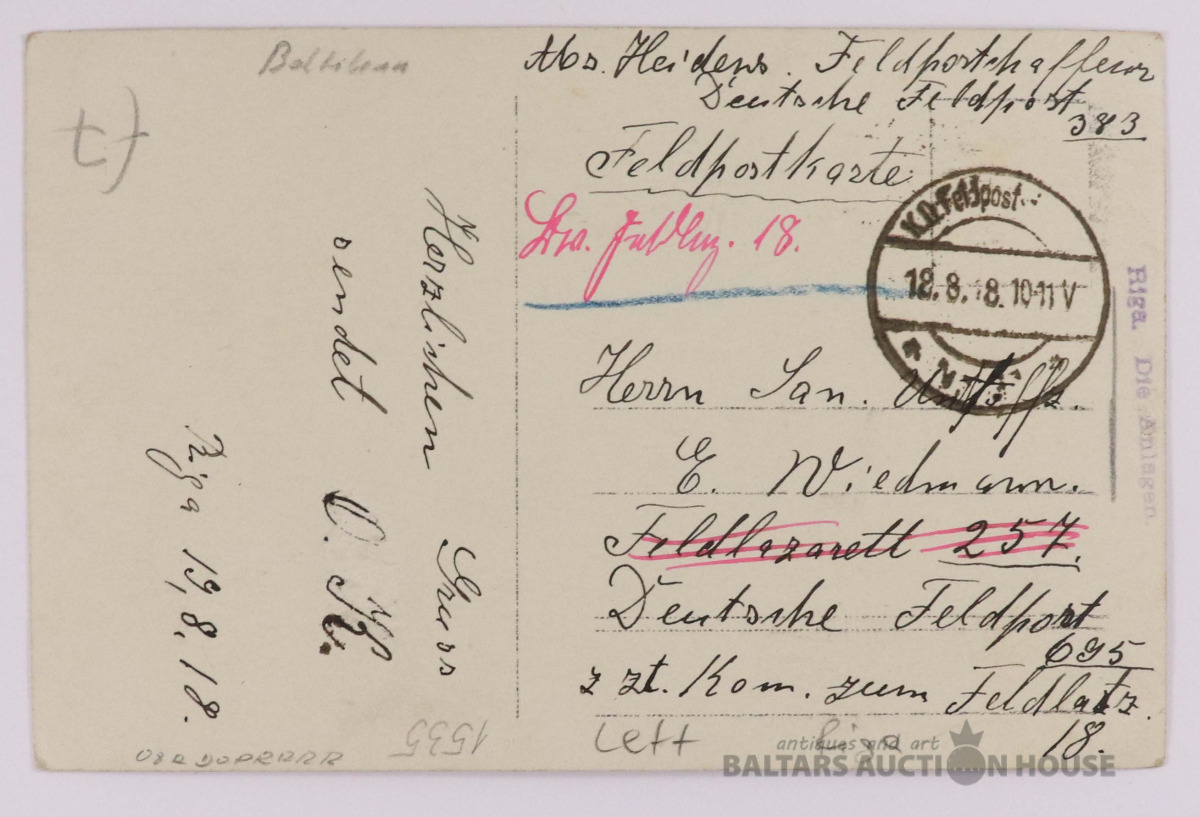 Abs. Heidens. Feldpostschaffeur
Deutsche Feldpost
383
Feldpostkarte
18.
K.D. Feldpost
18.8.18.10-11 V
Herrn San. Untffz.
E. Wiedmann.
Feldlazarett 257.
Deutsche Feldpost
695
z zt. Kom. zum Feldlatz.
18.
Riga. Die Anlagen.
Herzlichen Gruss
sendet O. K.
Riga 19,8,18.
1535
Lett Riga
antiques and art
BALTARS AUCTION HOUSE